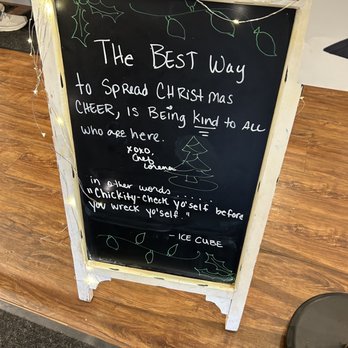 THE BEST WAY
to SPREAD CHRISTMAS
CHEER, is Being Kind to ALL
who are here.
xoxo,
Chef
Lorena
in other words.....
"Chickity-check yo'self before
you wreck yo'self."
- ICE CUBE